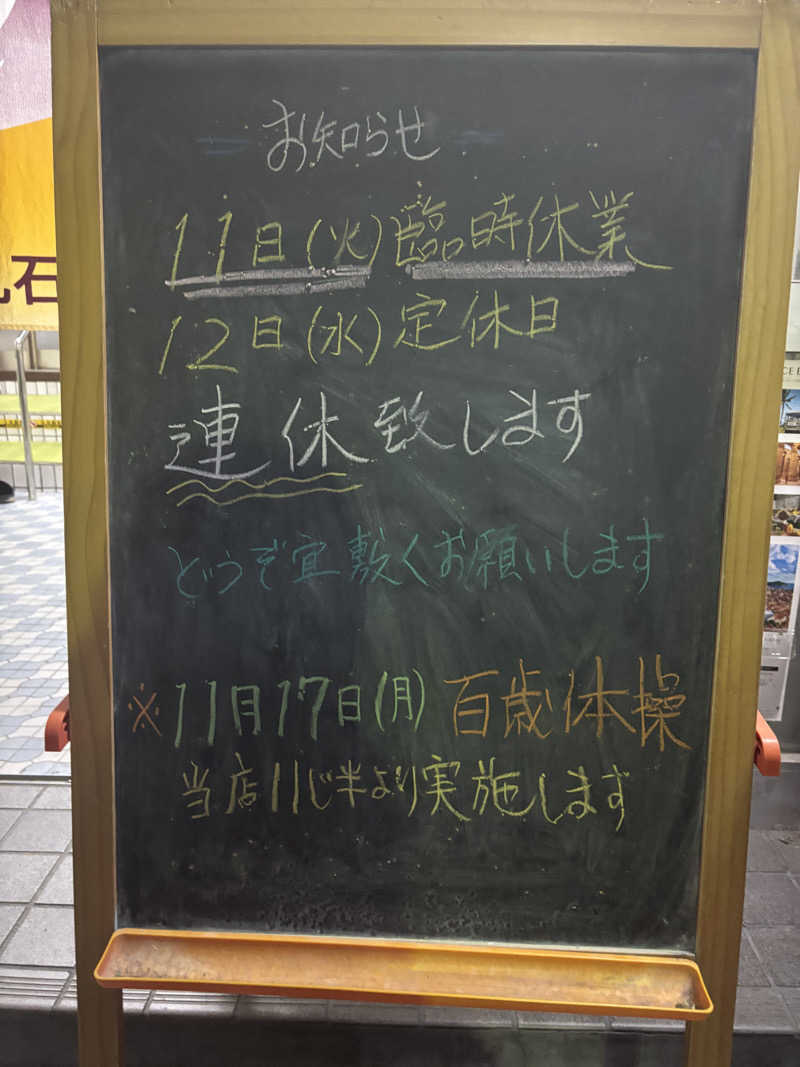 お知らせ
11日(火)臨時休業
12日(水)定休日
連休致します
どうぞ宜敷くお願いします
※11月17日(月)百歳体操
当店11じ半より実施します
石